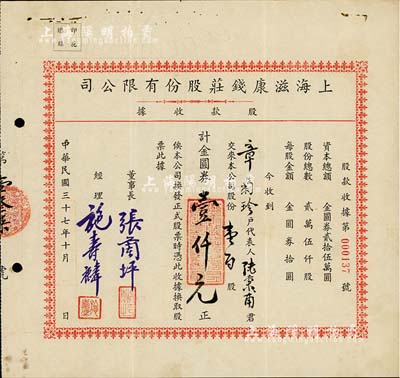 上海滋康錢莊股份有限公司
股款收據
股款收據第 000137 號
資本總額 金圓券貳拾伍萬圓
股份總數 貳萬伍仟股
每股金額 金圓券拾圓
今收到
章菊珍戶代表人陸棠甫君
交來本公司股份壹百股
計金圓券壹仟元正
俟本公司換發正式股票時憑此收據換取股
票此據
董事長 張蘭坪
經理 施壽麟
中華民國三十七年十月 日